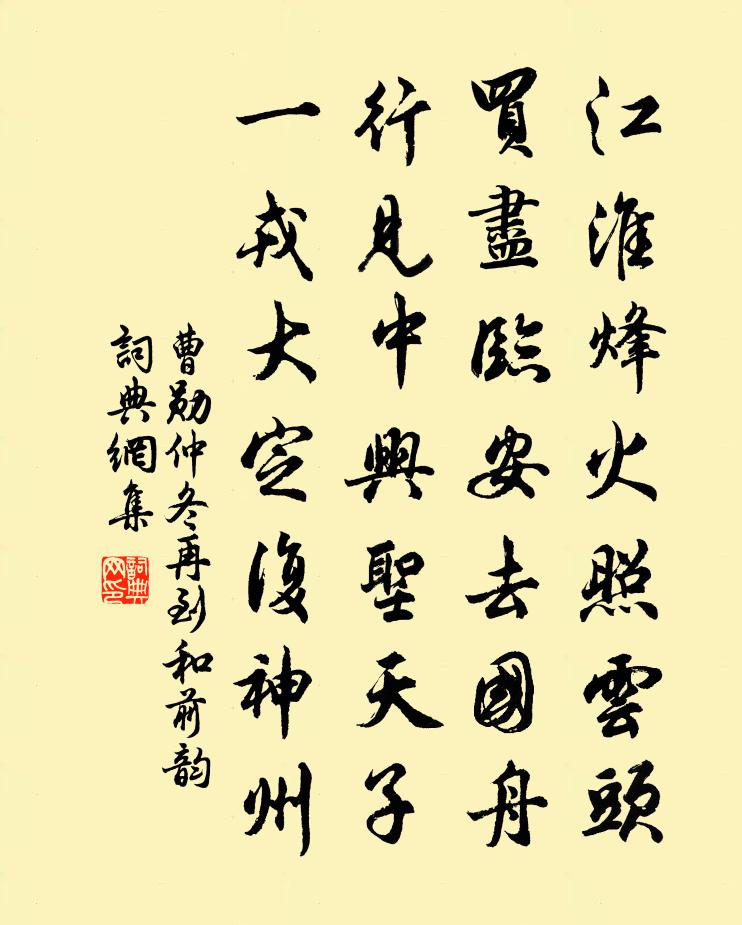 江淮烽火照雲頭
買盡臨安去國舟
行見中興聖天子
一戎大定復神州
曹勛仲冬再到和前韵
詞典網集
詞典网印